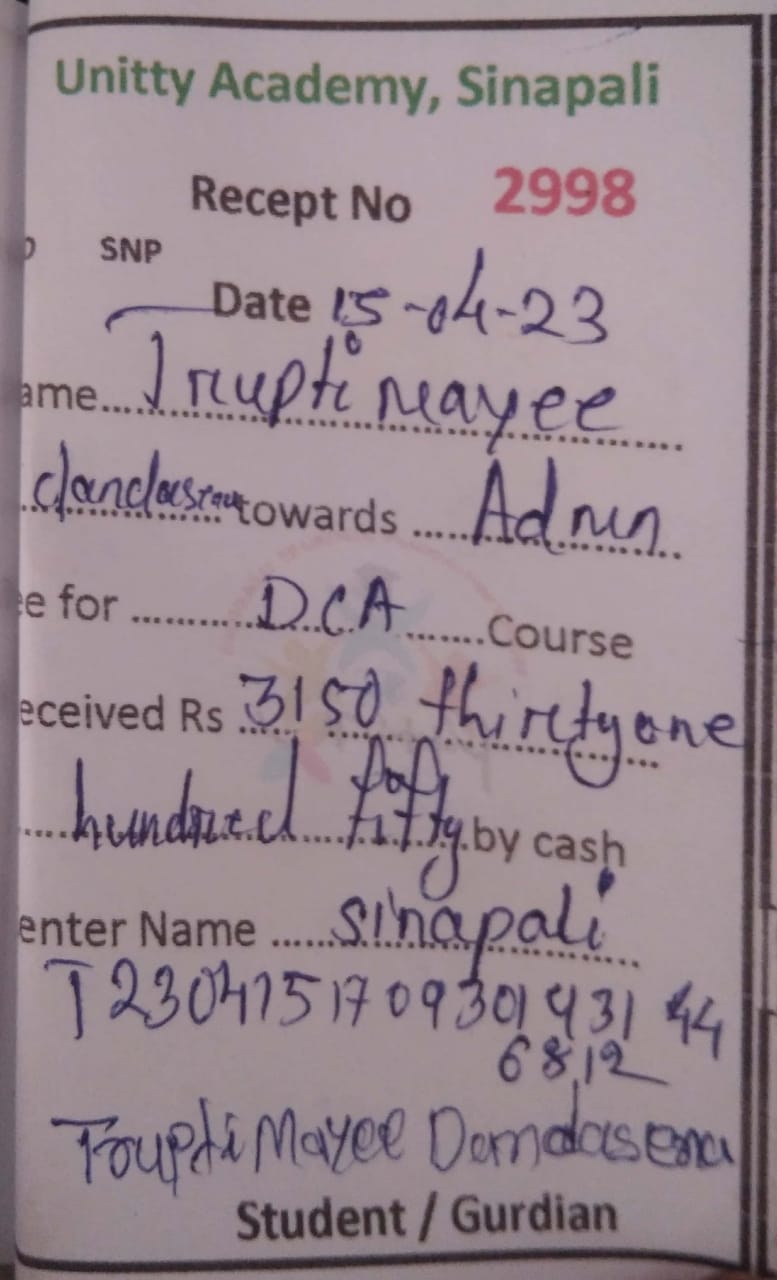 Unitty Academy, Sinapali
Recept No 2998
SNP
Date 15-04-23
ame...... Truptimayee
dandasena towards ..... Admn
e for ............ D.C.A ....... Course
eceived Rs 3150 thirtyone
.... hundred fifty by cash
enter Name ...... Sinapali
T23041517093019431 44
6812
TruptiMayee Dandasena
Student / Gurdian